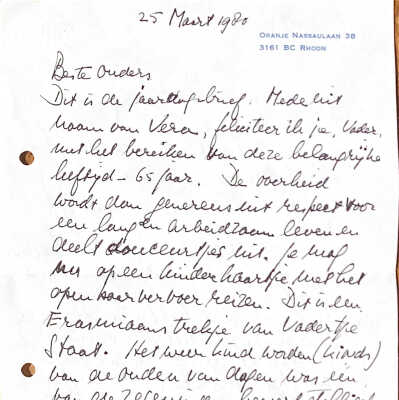 25 Maart 1980
ORANJE NASSAULAAN 38
3161 BC RHOON
Beste Ouders
Dit is de jaardagbrief. Mede uit
naam van Vera, feliciteer ik je, Vader,
met het bereiken van deze belangrijke
leeftijd - 65 jaar. De overheid
wordt dan genereus uit respect voor
een lang en arbeidzaam leven en
deelt douceurtjes uit. Je mag
nu op een kinderkaartje met het
openbaar vervoer reizen. Dit is een
Erasmiaans trekje van Vadertje
Staat. Het weer kind worden (kinds)
van de ouden van dagen was een
van de